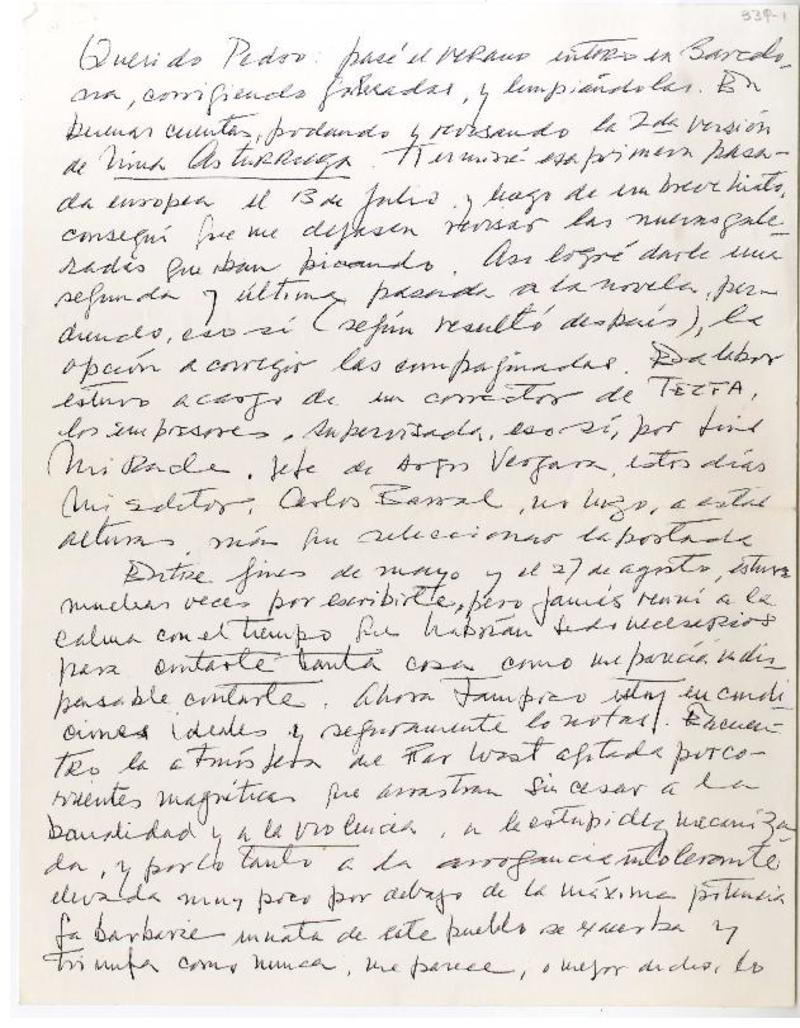 339-1
Querido Pedro: pasé el verano entero en Barcelo-
na, corrigiendo galeradas, y limpiándolas. En
buenas cuentas, podando y revisando la 2da versión
de Viva Asturriaga. Terminé esa primera pasa-
da europea el 13 de Julio, y luego de un breve hiato,
conseguí que me dejasen revisar las nuevas gale-
radas que iban picando. Así logré darle una
segunda y última pasada a la novela, per-
diendo, eso sí (según resultó después), la
opción a corregir las compaginadas. Esa labor
estuvo a cargo de un corrector de TEZFA,
los impresores, supervisada, eso sí, por
Mirache, jefe de Argos Vergara, estos días
Mi editor, Carlos Barral, no hizo, a estas
alturas, más que seleccionar la portada
Entre fines de mayo y el 27 de agosto, estuve
muchas veces por escribirte, pero jamás reuní a la
calma con el tiempo que habrían sido necesarios
para contarte tanta cosa como me parecía indis-
pensable contarte. Ahora tampoco estoy en condi-
ciones ideales y seguramente lo notas. Encuen-
tro la atmósfera de Far West agitada por co-
rrientes magnéticas que arrastran sin cesar a la
banalidad y a la violencia, a la estupidez mecaniza-
da, y por lo tanto a la arrogancia intolerante
elevada muy poco por debajo de la máxima potencia
La barbarie innata de este pueblo se exacerba y
triunfa como nunca, me parece, o mejor dicho, lo